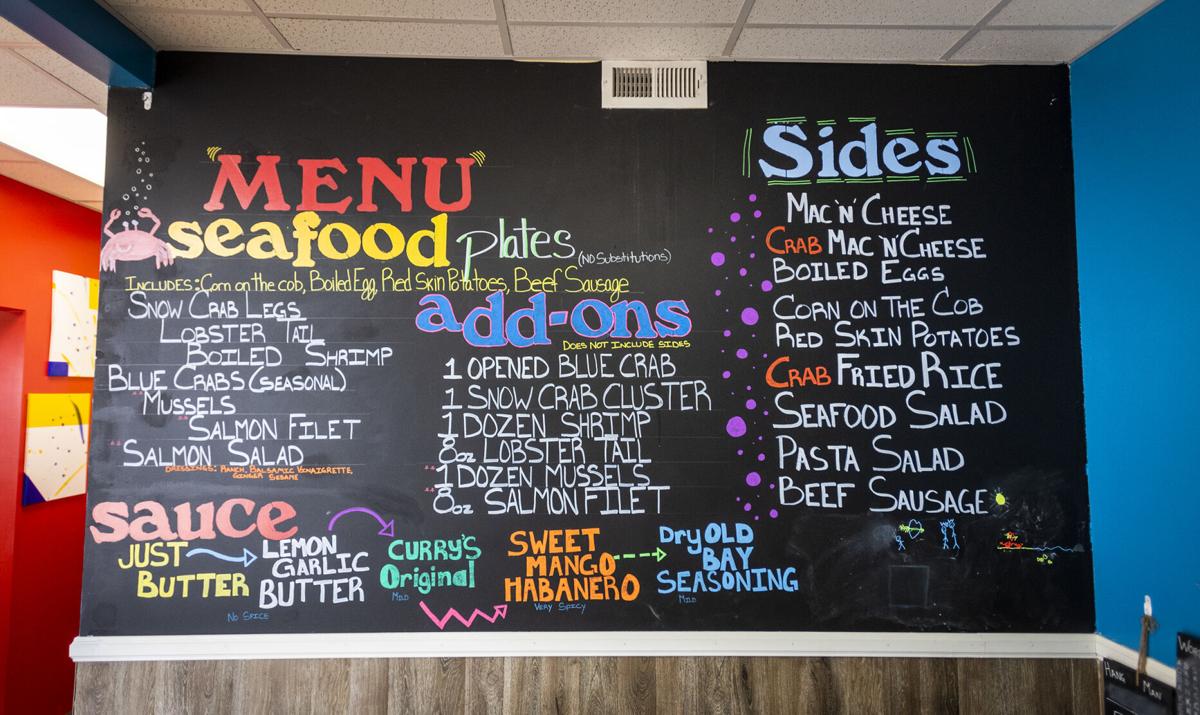 MENU
seafood plates (NO Substitutions)
INCLUDES: Corn on the cob, Boiled Egg, Red Skin Potatoes, Beef Sausage
SNOW CRAB LEGS
LOBSTER TAIL
BOILED SHRIMP
BLUE CRABS (SEASONAL)
MUSSELS
SALMON FILET
SALMON SALAD
DRESSINGS: RANCH, BALSAMIC VINAIGRETTE,
GINGER SESAME
add-ons
DOES NOT INCLUDE SIDES
1 OPENED BLUE CRAB
1 SNOW CRAB CLUSTER
1 DOZEN SHRIMP
8oz LOBSTER TAIL
1 DOZEN MUSSELS
8oz SALMON FILET
Sides
MAC 'N' CHEESE
CRAB MAC 'N CHEESE
BOILED EGGS
CORN ON THE COB
RED SKIN POTATOES
CRAB FRIED RICE
SEAFOOD SALAD
PASTA SALAD
BEEF SAUSAGE
sauce
JUST
BUTTER
LEMON
GARLIC
BUTTER
NO SPICE
CURRY'S
Original
MILD
SWEET
MANGO
HABANERO
VERY SPICY
Dry OLD
BAY
SEASONING
MILD
HANG MAN